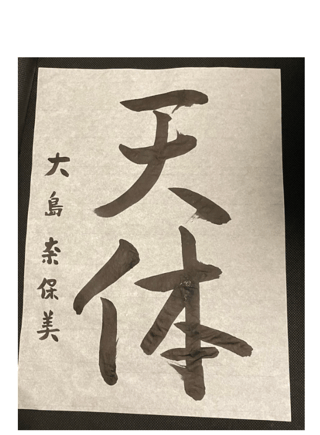 天体
大島奈保美